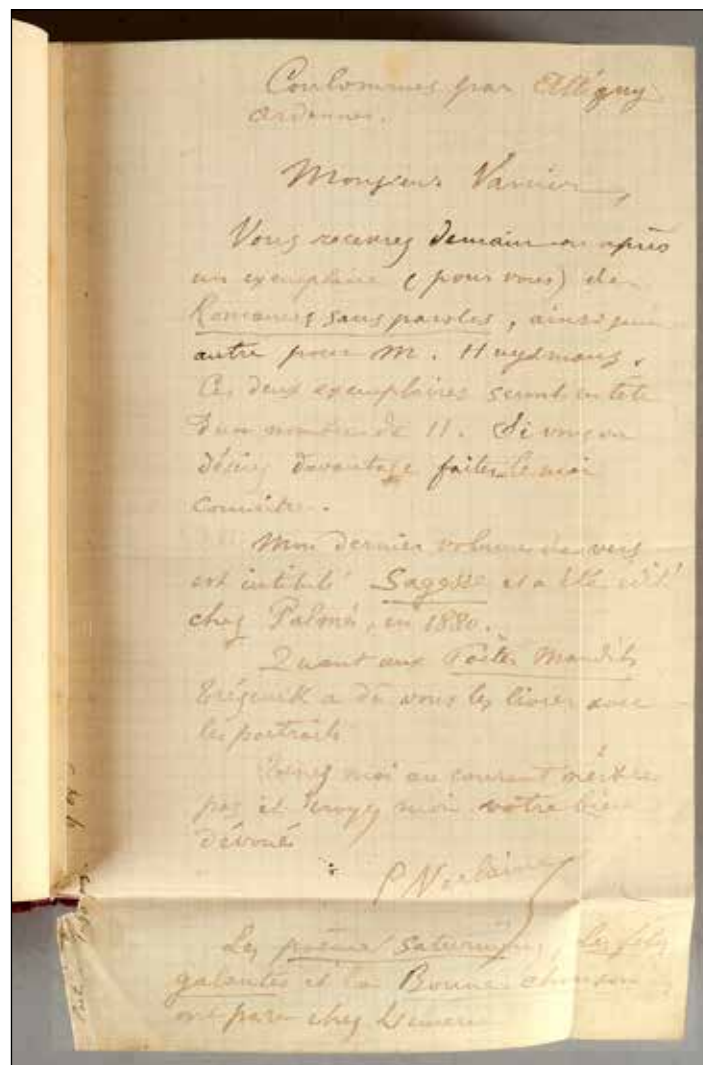 Coulommes par Attigny
Ardennes.
Monsieur Vanier,
Vous recevrez demain ou après
un exemplaire (pour vous) de
Romances sans paroles, ainsi qu'un
autre pour M. Huysmans.
Ces deux exemplaires seront en tête
d'un nombre de 11. Si vous en
désirez davantage faites le moi
connaître.
Mon dernier volume de vers
est intitulé Sagesse et a été édité
chez Palmé, en 1880.
Quant aux Poètes Maudits
Trézenik a dû vous les livrer avec
les portraits
Tenez moi au courant n'est ce
pas et croyez moi votre bien
dévoué
P Verlaine
Les poèmes saturniens, les fêtes
galantes et la Bonne chanson
ont paru chez Lemerre